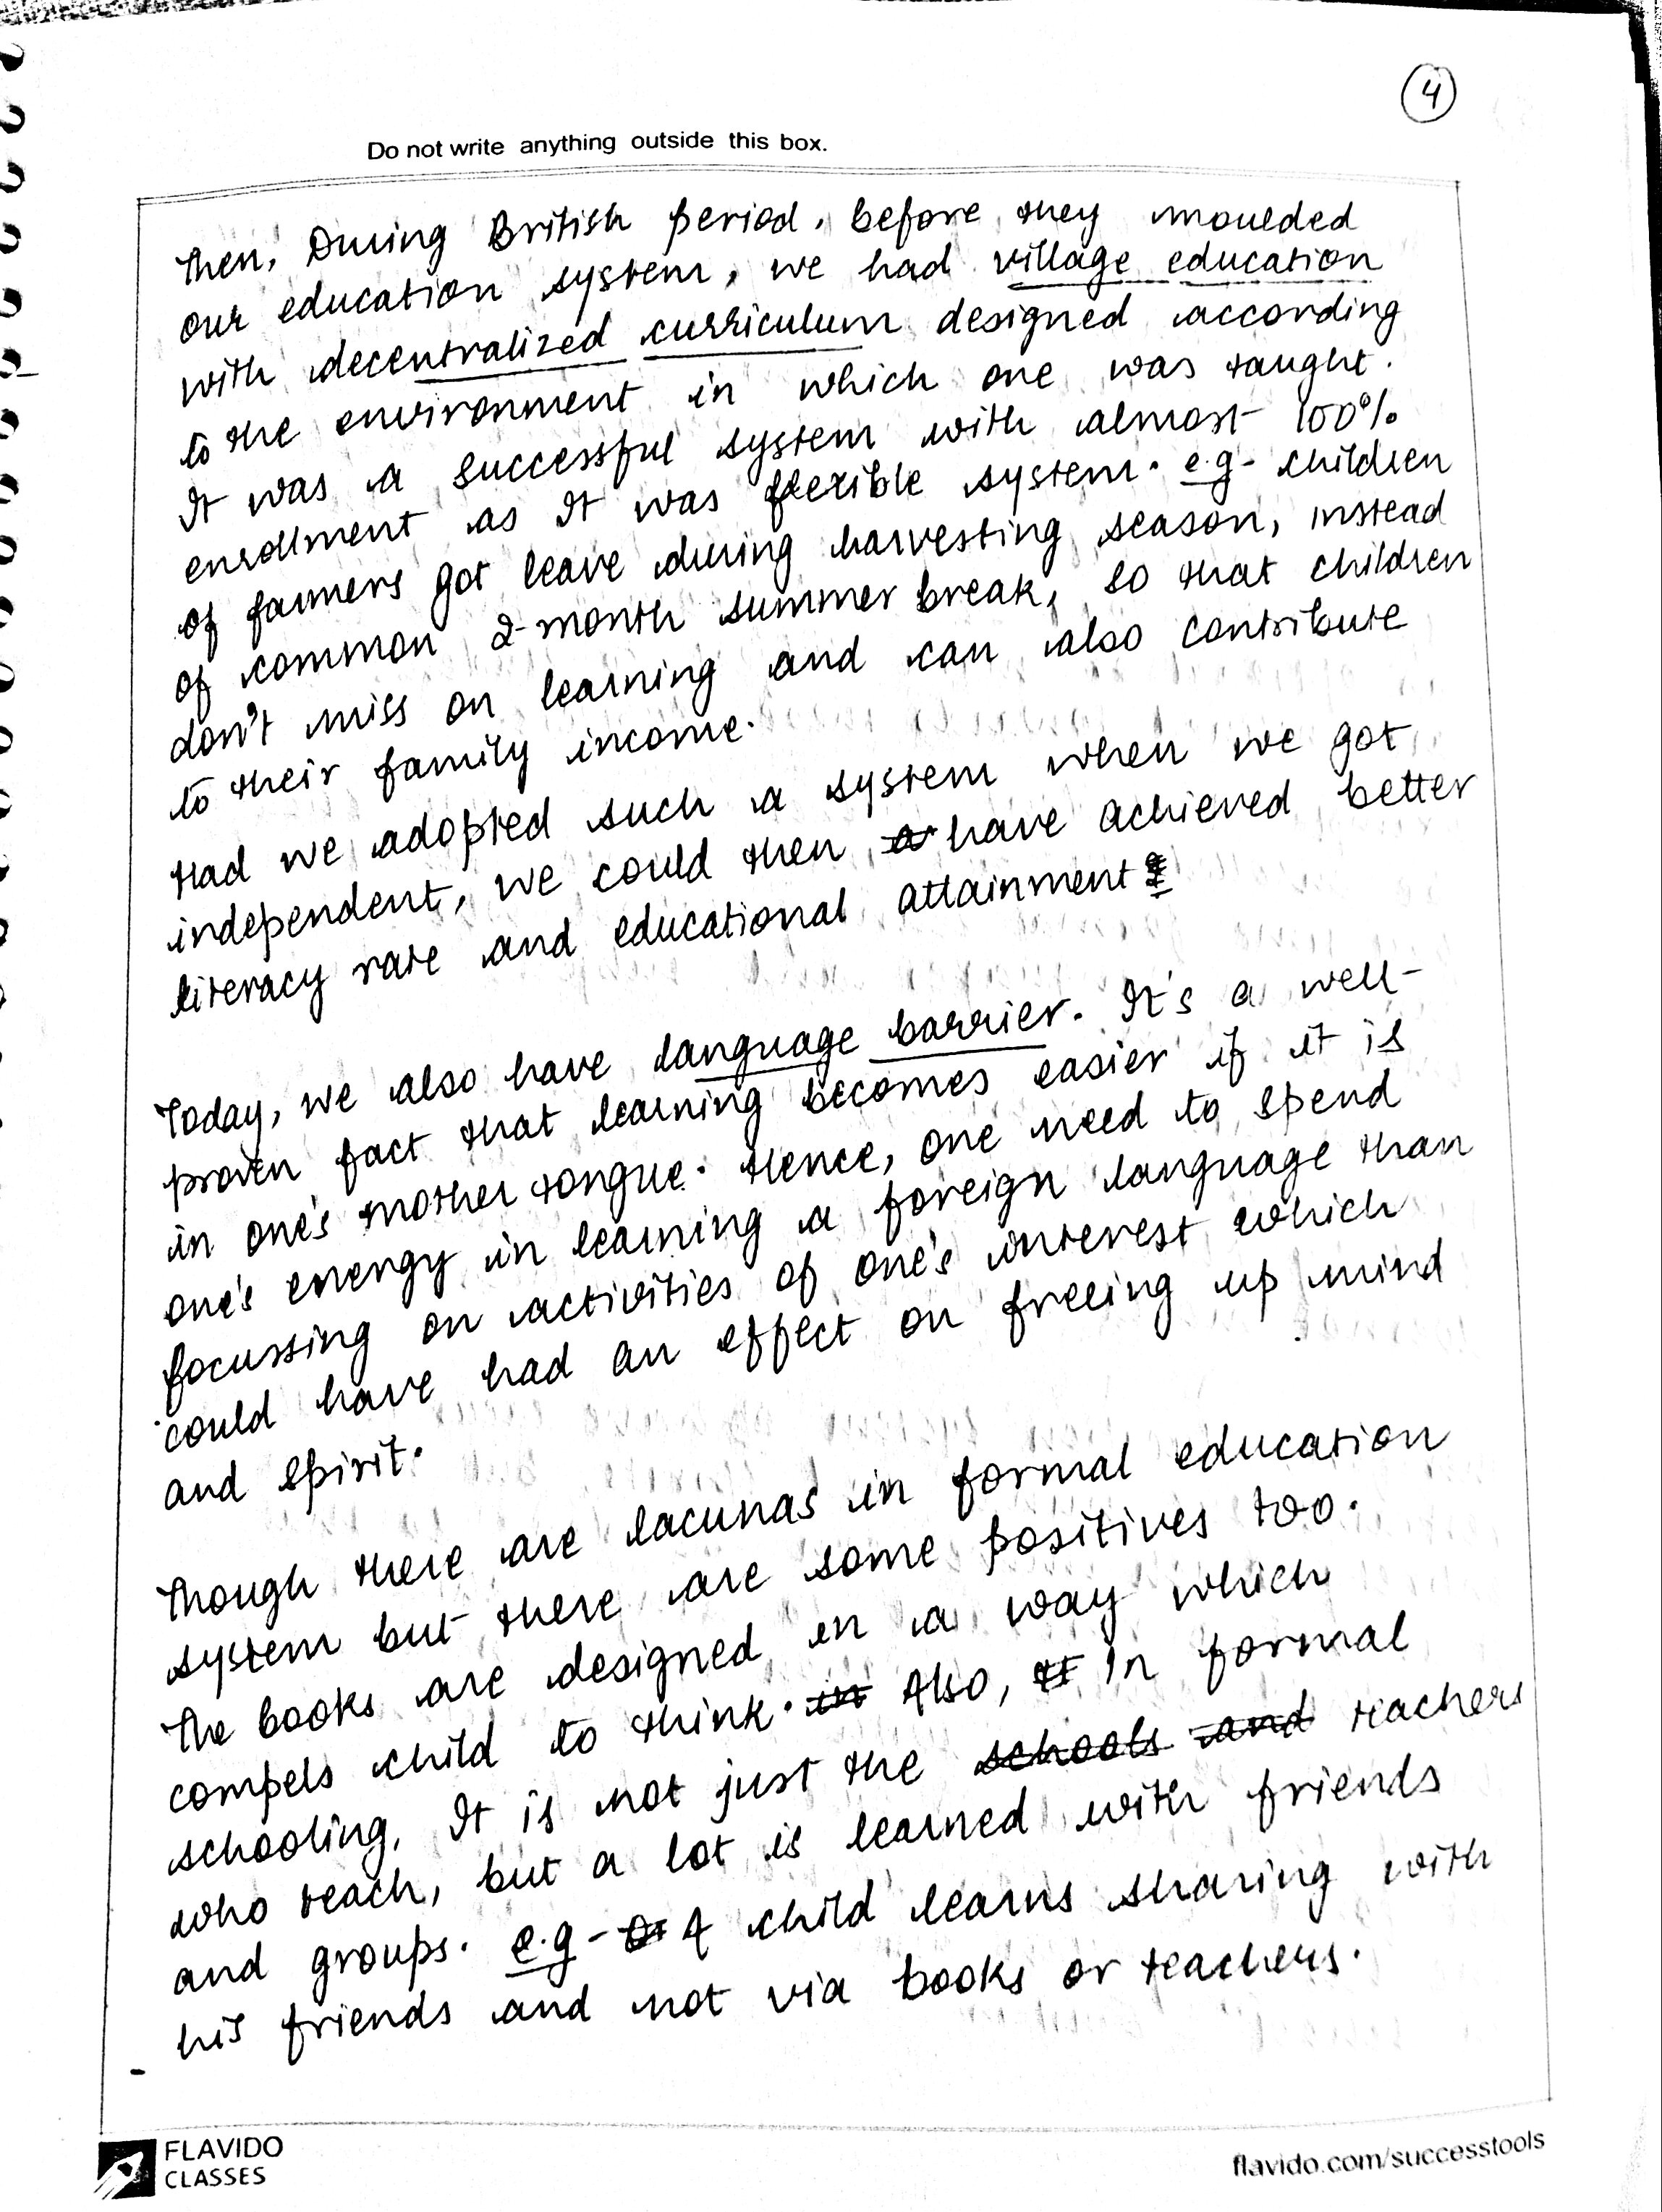 4
Do not write anything outside this box.
Then, During British period, before they moulded
our education system, we had village education
with decentralized curriculum designed according
to the environment in which one was taught.
It was a successful system with almost 100%
enrollment as It was flexible system. e.g- children
of farmers got leave during harvesting season, instead
of common 2-month summer break, so that children
don't miss on learning and can also contribute
to their family income.
Had we adopted such a system when we got
independent, we could then have achieved better
literacy rate and educational attainment
Today, we also have language barrier. It's a well-
proven fact that learning becomes easier if it is
in one's mother tongue. Hence, one need to spend
one's energy in learning a foreign language than
focussing on activities of one's interest which
could have had an effect on freeing up mind
and spirit.
Though there are lacunas in formal education
system but there are some positives too.
The books are designed in a way which
compels child to think. in Also, It In formal
schooling, It is not just the schools and teachers
who teach, but a lot is learned with friends
and groups. e.g- A child learns sharing with
his friends and not via books or teachers.
FLAVIDO
CLASSES
flavido.com/successtools